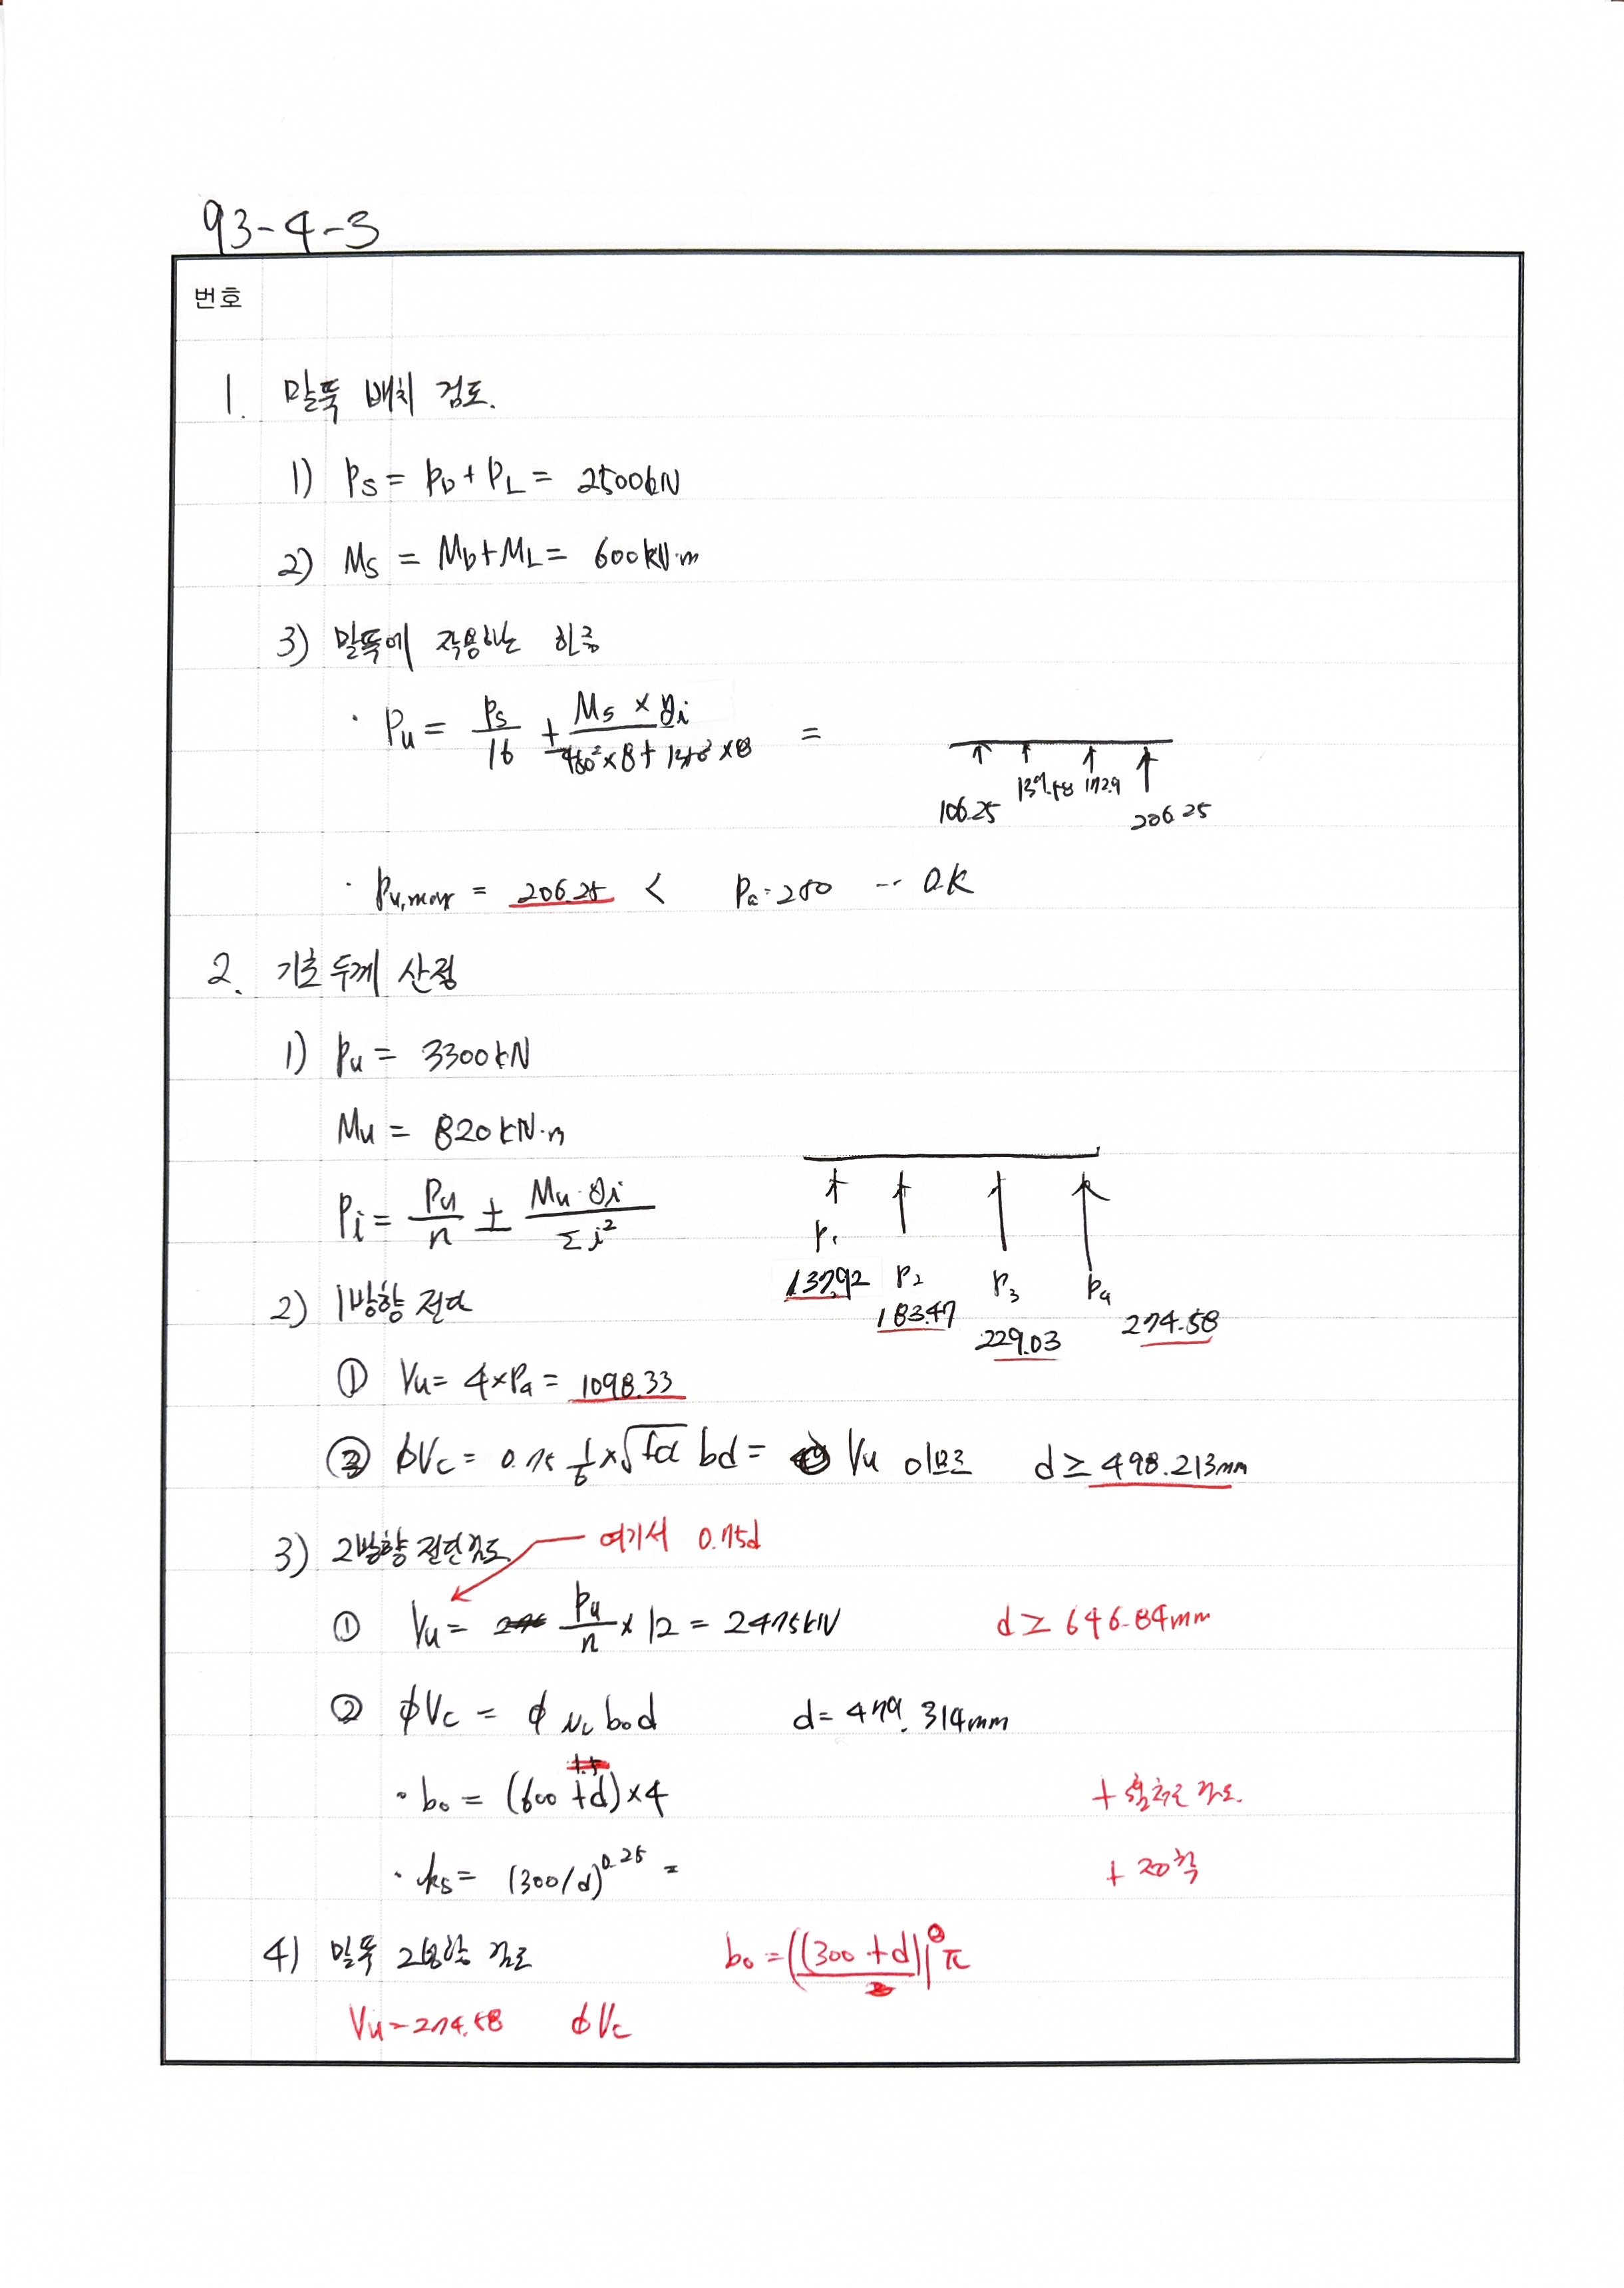 93-4-3
번호
1. 말뚝 배치 검토.
1) Ps = PD + PL = 2500kN
2) Ms = MD + ML = 600kN·m
3) 말뚝에 작용하는 하중
· Pu = Ps/16 ± Ms × yi / 450² × 8 + 1350² × 8 =
106.25 139.58 172.9 206.25
· Pu,max = 206.25 < Pa = 250 -- OK
2. 기초 두께 산정
1) Pu = 3300kN
Mu = 820kN·m
Pi = Pu/n ± Mu·yi / Σi²
P1 P2 P3 P4
137.92 183.47 229.03 274.58
2) 1방향 전단
① Vu = 4×P4 = 1098.33
② φVc = 0.75 1/6 × √fck bd = Vu 이므로 d ≥ 498.213mm
3) 2방향 전단검토 여기서 0.75d
① Vu = Pu/n × 12 = 2475kN d ≥ 646.84mm
② φVc = φ νc bo d d = 479.314mm
· bo = (600 + d)×4
· ks = (300/d)^0.25 =
4) 말뚝 2방향 검토 bo = (300 + d) π
Vu = 274.58 φVc